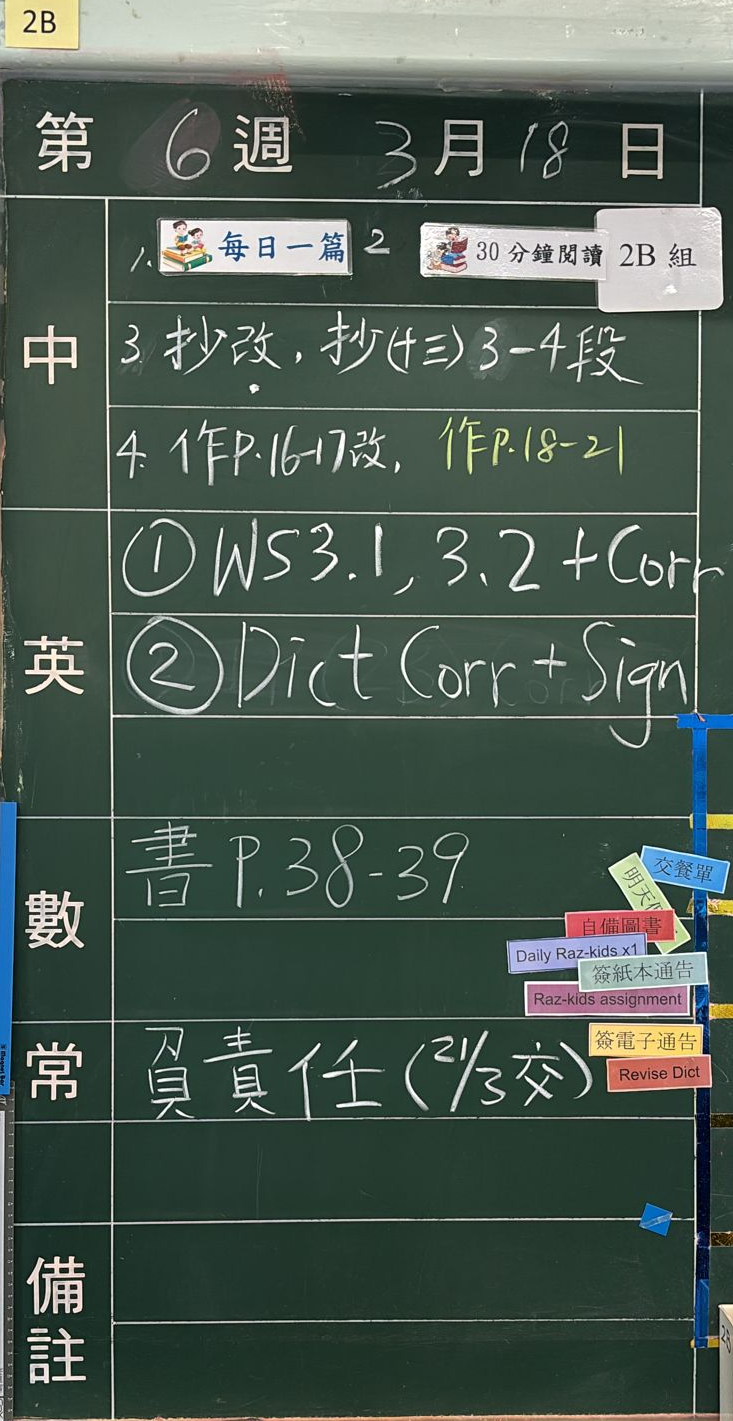 2B
第 6 週 3 月 18 日
中
1. 每日一篇 2 30分鐘閱讀 2B 組
3. 抄改，抄(十三) 3-4段
4. 作P.16-17改， 作P.18-21
英
① WS3.1, 3.2 + Corr
② Dict Corr + Sign
數
書 P.38-39
交餐單
自備圖書
Daily Raz-kids x1
簽紙本通告
Raz-kids assignment
常
負責任 (21/3交)
簽電子通告
Revise Dict
備註